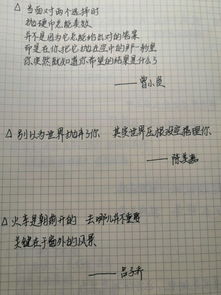 △ 当面对两个选择时
抛硬币总能奏效
并不是因为它总能给出对的答案
而是在你把它抛在空中的那一秒里
你突然就知道你希望的结果是什么了
——曾小贤
△ 别以为世界抛弃了你 其实世界压根没空搭理你
——陈美嘉
△ 火车是朝前开的 去哪儿并不重要
关键在于窗外的风景
——吕子乔